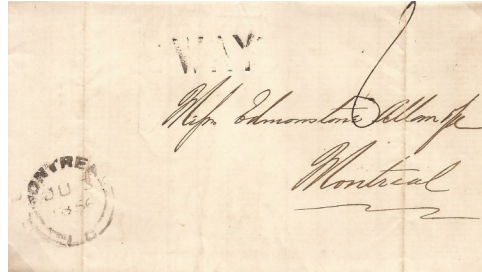 WAY
6
Messrs Edmonstone Allan &c
Montreal
MONTREAL
JU
185
L.C